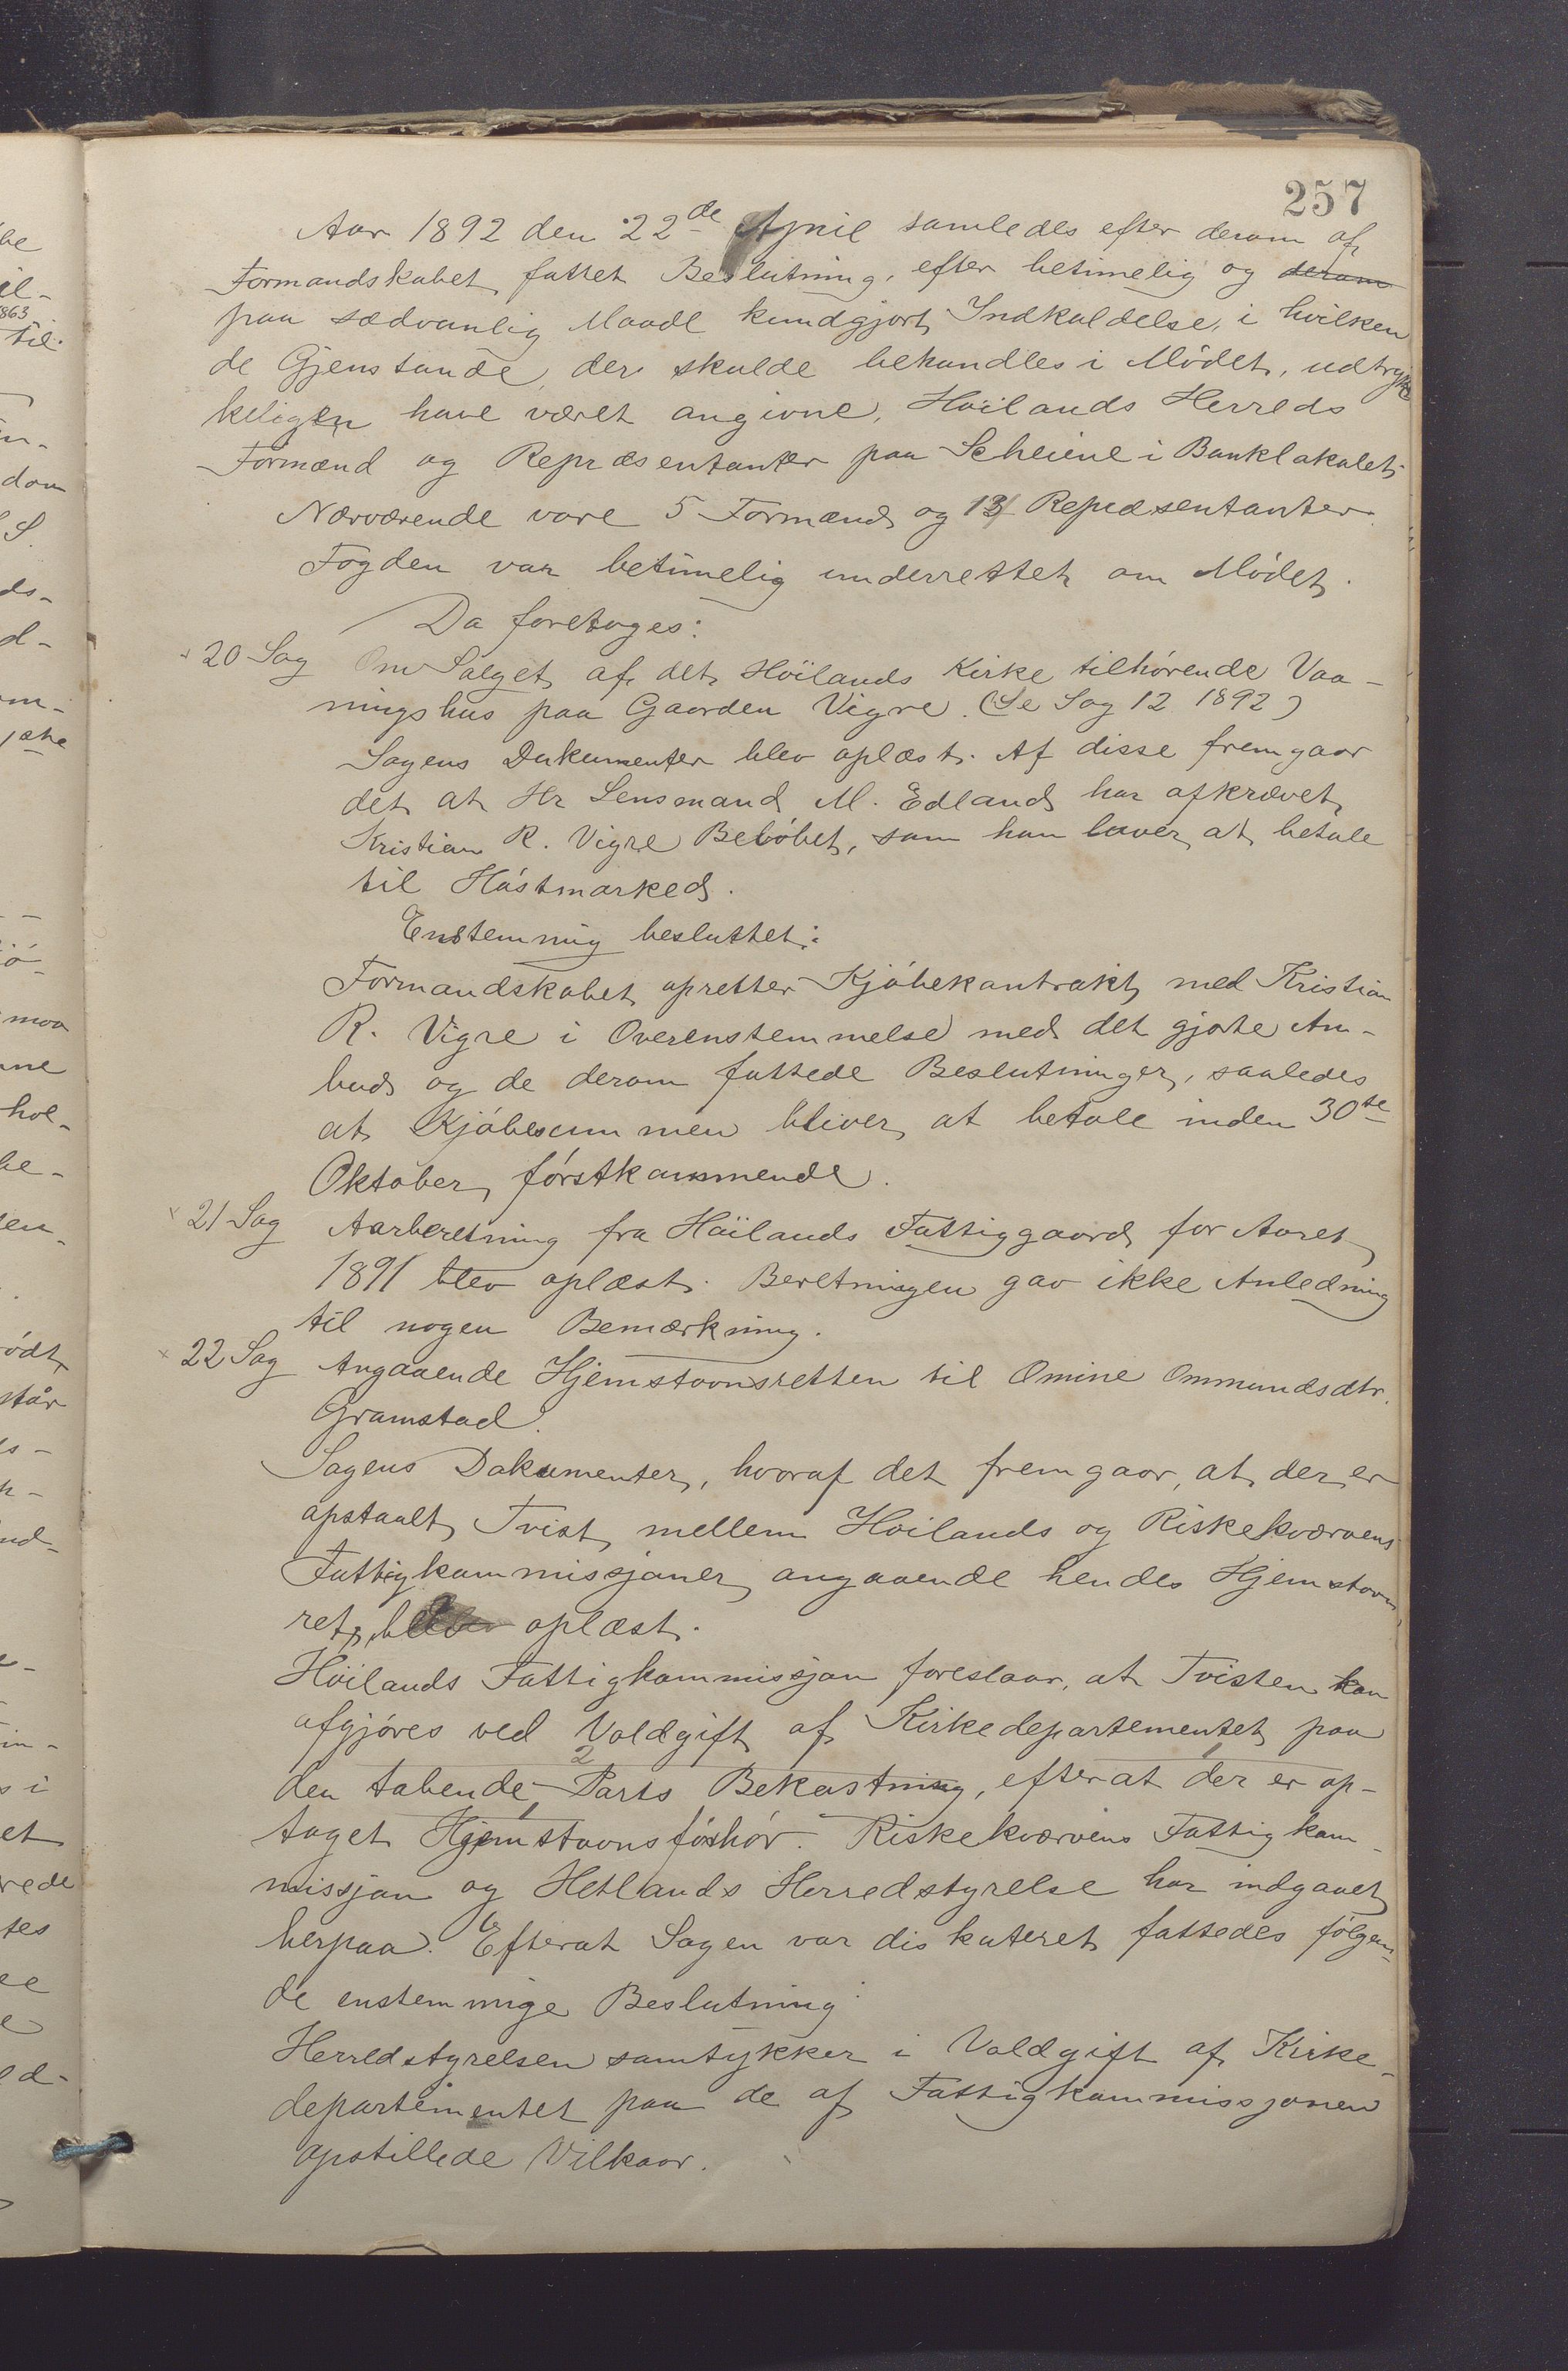 257
Aar 1892 den 22de April samledes efter derom af
Formandskabet fattet Beslutning, efter betimelig og derom
paa sædvanlig Maade kundgjort Indkaldelse, i hvilken
de Gjenstande, der skulde behandles i Mødet, udtryk-
keligen have været angivne, Høilands Herreds
Formænd og Repræsentanter paa Scheiene i Banklokalet.
Nærværende vare 5 Formænd og 13 Repræsentanter.
Fogden var betimelig underrettet om Mødet.
Da foretoges:
20 Sag Om Salget af det Høilands Kirke tilhørende Vaa-
ningshus paa Gaarden Vigre. (Se Sag 12 1892)
Sagens Dokumenter blev oplæst. Af disse fremgaar
det at Hr Lensmand M. Edland har afkrævet
Kristian R. Vigre Beløbet, som han lover at betale
til Høstmarked.
Enstemmig besluttet:
Formandskabet opretter Kjøbekontrakt med Kristian
R. Vigre i Overenstemmelse med det gjorte An-
bud og de derom fattede Beslutninger, saaledes
at Kjøbesummen bliver at betale inden 30te
Oktober førstkommende.
21 Sag Aarberetning fra Høilands Fattiggaard for Aaret
1891 blev oplæst. Beretningen gav ikke Anledning
til nogen Bemærkning.
22 Sag Angaaende Hjemstavnsretten til Omine Ommundsdtr.
Gramstad.
Sagens Dokumenter, hvoraf det fremgaar, at der er
opstaalt Tvist mellem Høilands og Riskekværvens
Fattigkommissjoner angaaende hendes Hjemstavns
ret, blev oplæst.
Høilands Fattigkommissjon foreslaar, at Tvisten kan
afgjøres ved Voldgift af Kirkedepartementet paa
den tabende Parts Bekostning, efterat der er op-
taget Hjemstavnsforhør. Riskekværvens Fattigkom-
missjon og Hetlands Herredstyrelse har indgaaet
herpaa. Efterat Sagen var diskuteret fattedes følgen-
de enstemmige Beslutning:
Herredstyrelsen samtykker i Voldgift af Kirke-
departementet paa de af Fattigkommissjonen
opstillede Vilkaar.